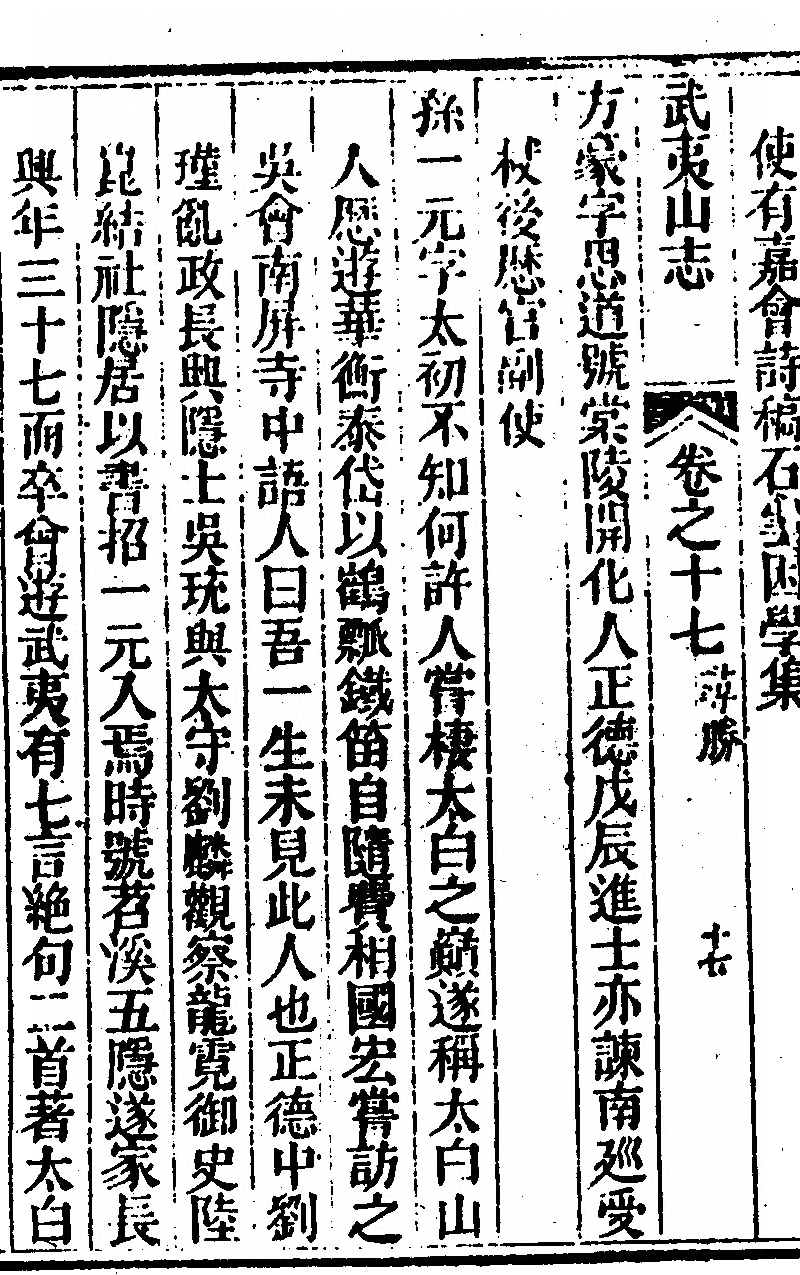 使有嘉會詩稿石雲困學集
武夷山志
卷之十七
游勝
十七
方豪字思道號棠陵開化人正德戊辰進士亦諫南廵受
杖後歷官副使
孫一元字太初不知何許人嘗棲太白之巔遂稱太白山
人歷遊華衡泰岱以鶴瓢鐵笛自隨費相國宏嘗訪之
吳會南屏寺中語人曰吾一生未見此人也正德中劉
瑾亂政長興隱士吳珫與太守劉麟觀察龍霓御史陸
崑結社隱居以書招一元入焉時號苕溪五隱遂家長
興年三十七而卒曾遊武夷有七言絶句二首著太白